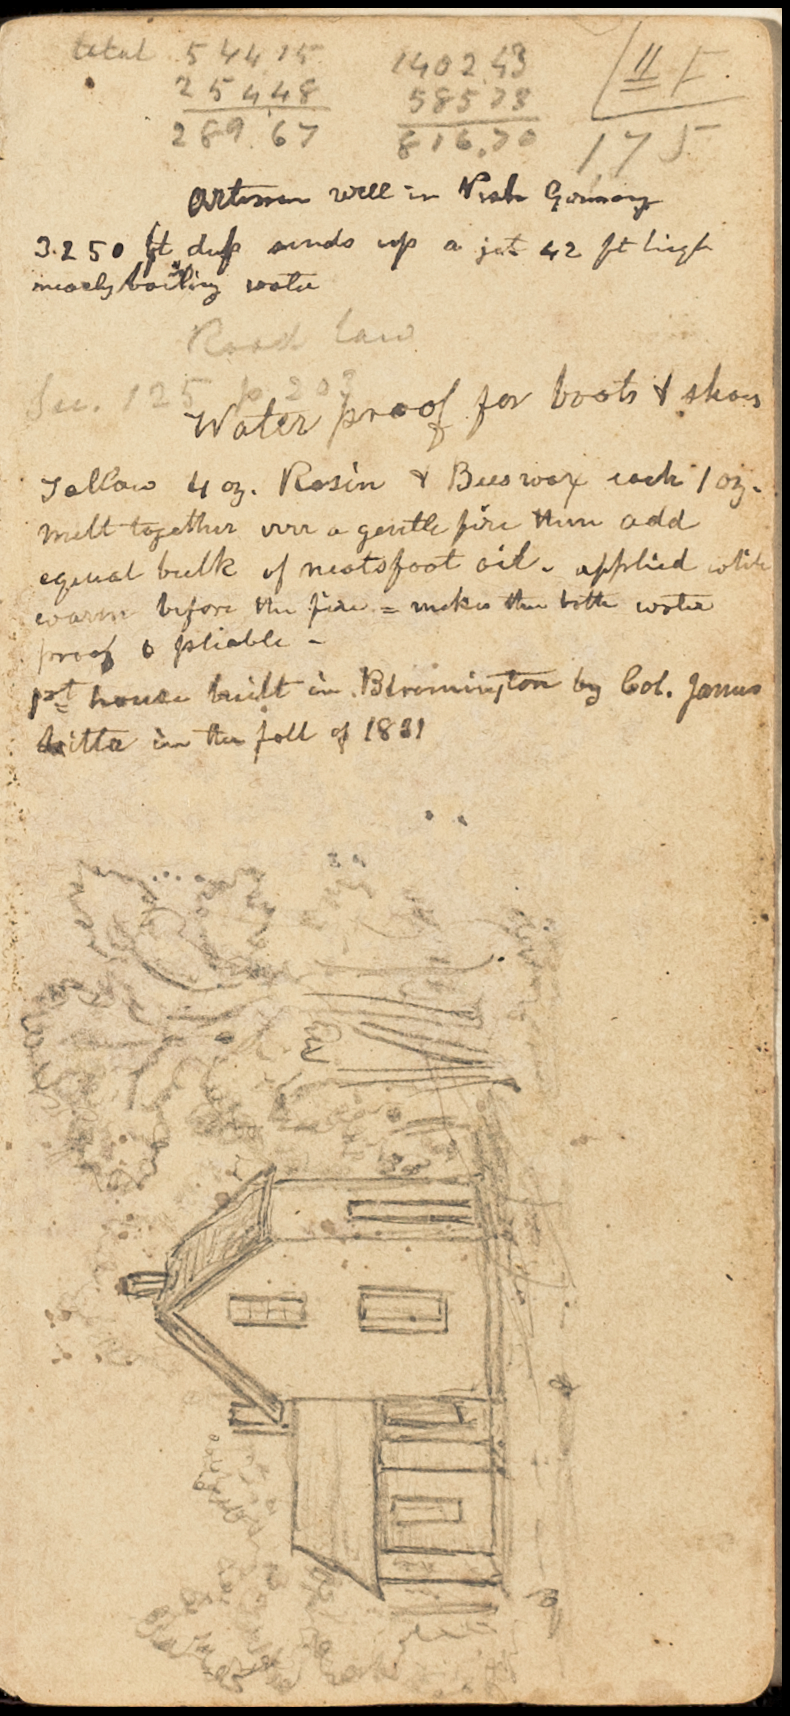 total 54415 140243 11 F.
25448 58573
289.67 816,70 175
Artesian well in Pesh Germany
3.250 ft deep sends up a jet 42 ft high
nearly boiling water
Road law
Sec. 125 p 203
Water proof for boots & shoes
Tallow 4 oz. Rosin & Beeswax each 1 oz.
melt together over a gentle fire then add
equal bulk of neatsfoot oil. applied while
warm before the fire = makes them both water
proof & pliable -
1st house built in Bloomington by Col. James
in the fall of 1831